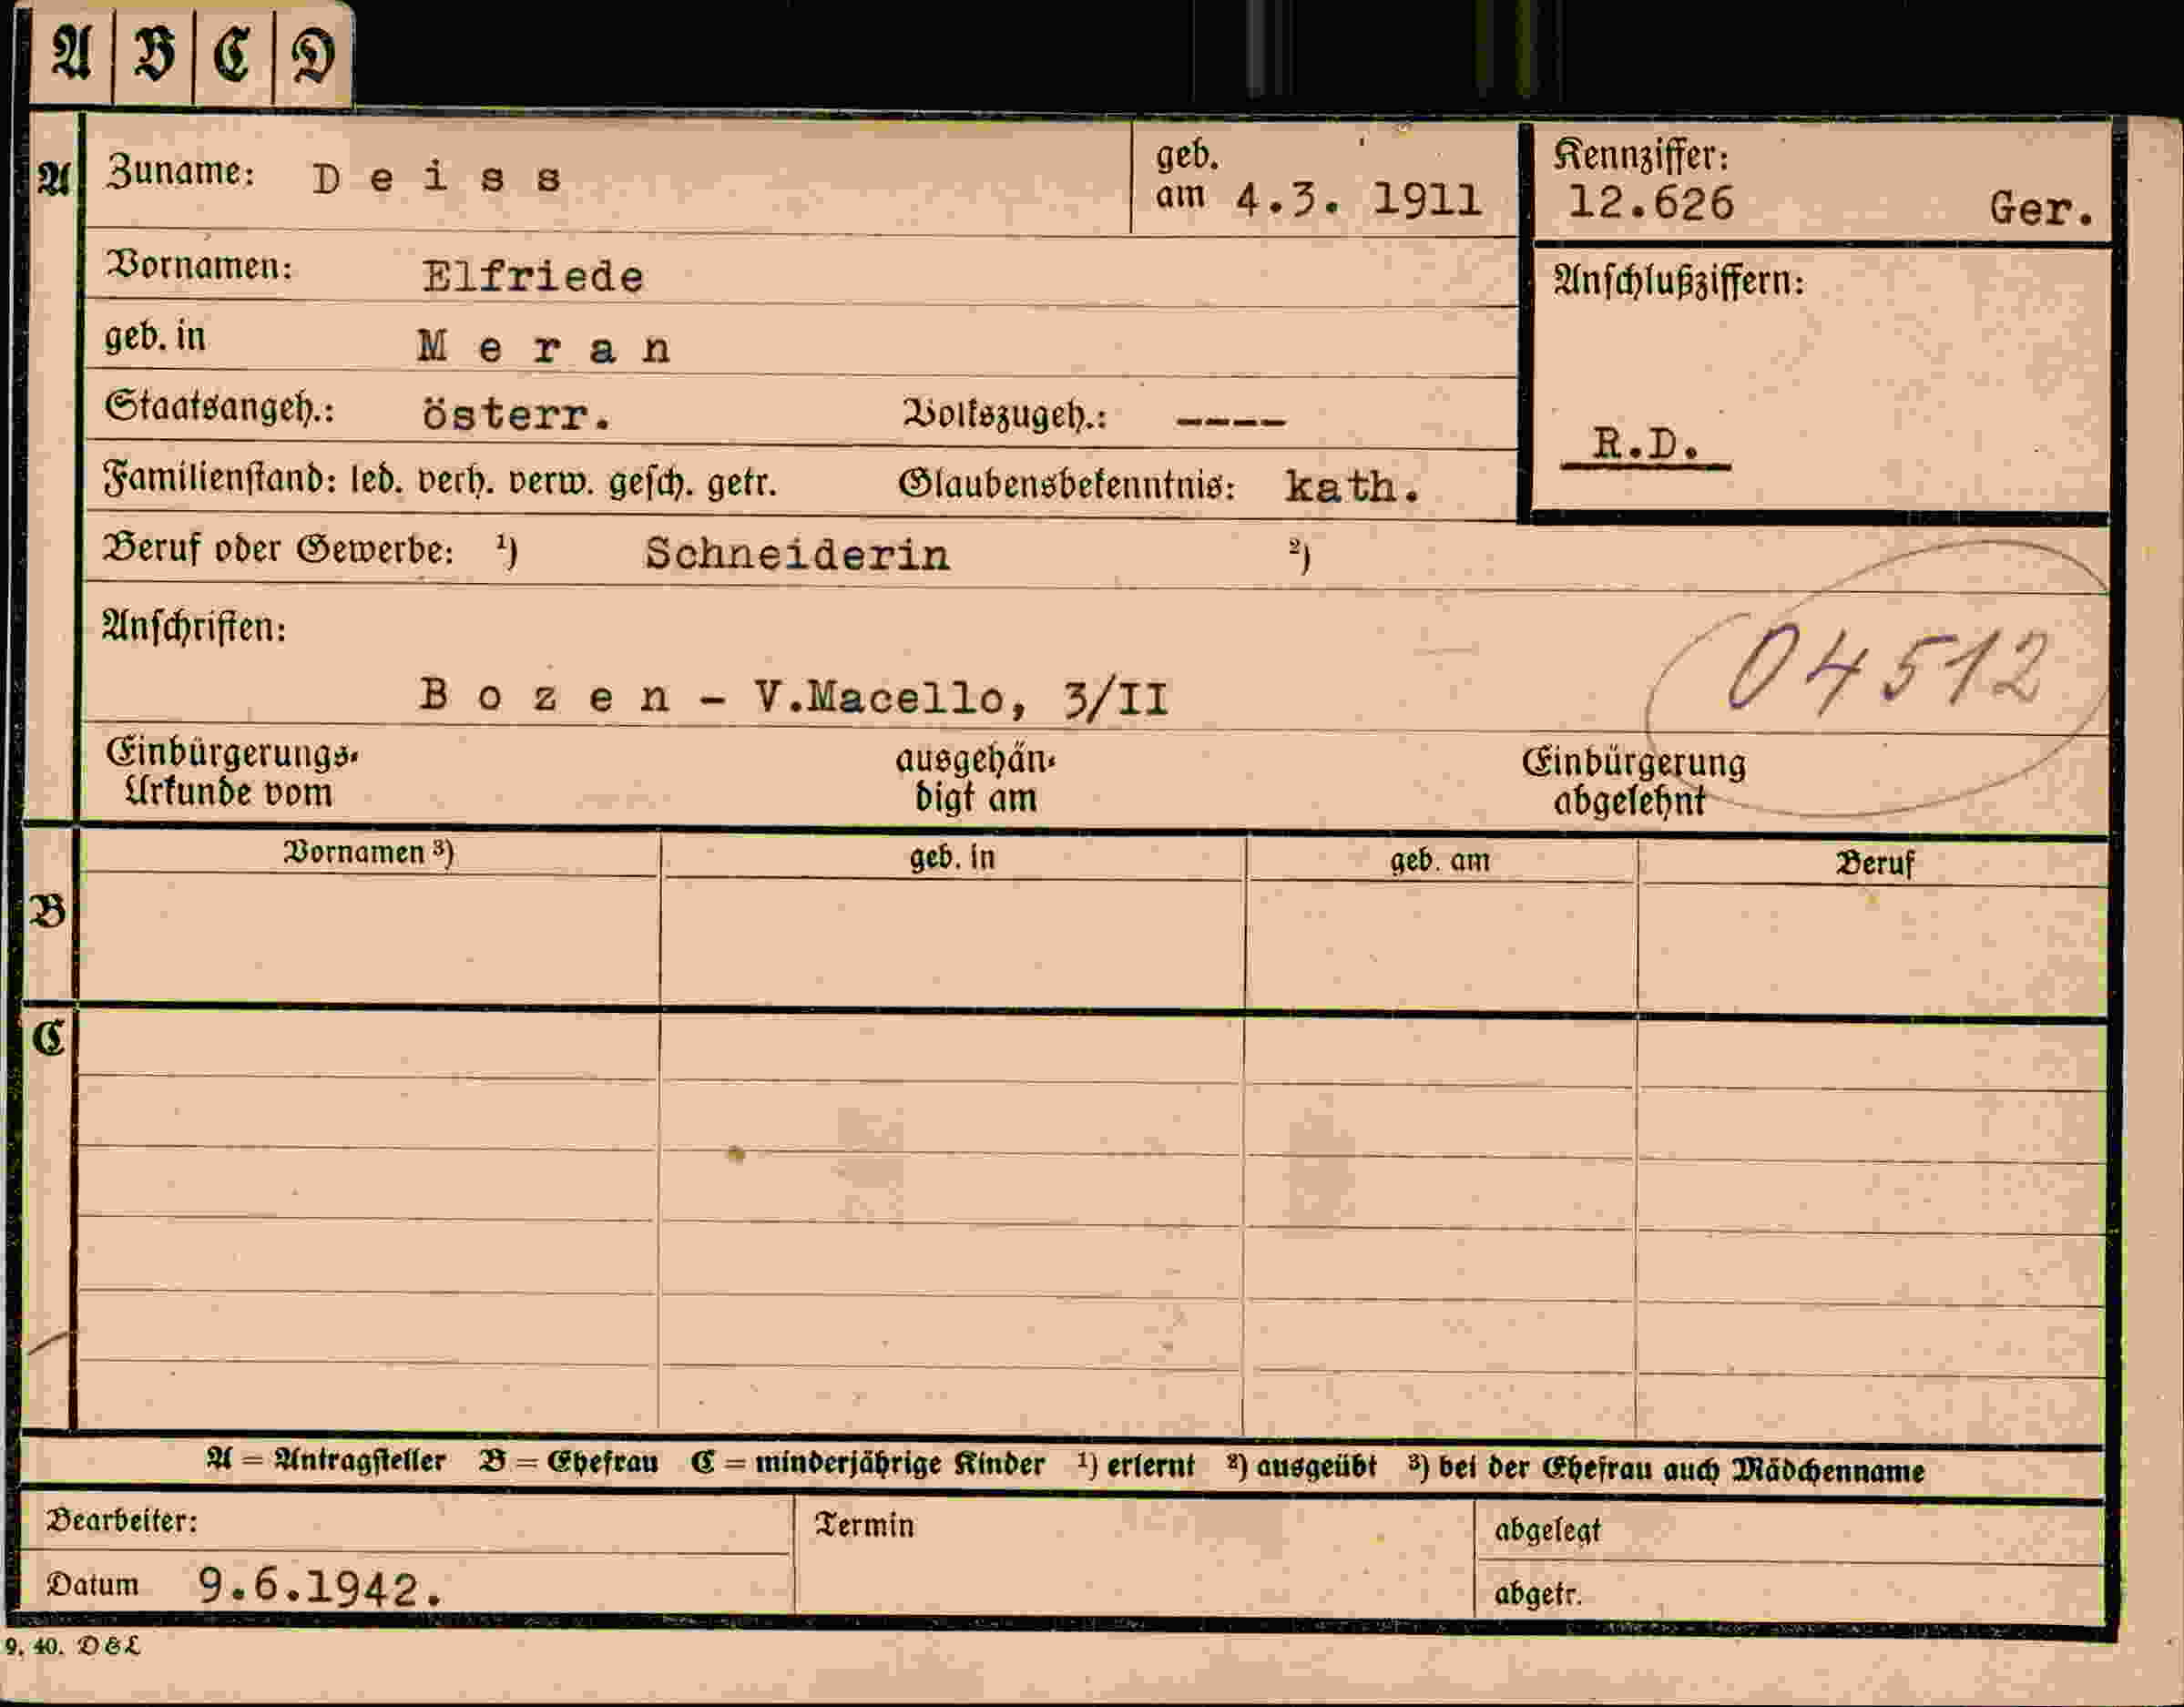 A B C D
A Zuname: Deiss geb. am 4.3. 1911 Kennziffer: 12.626 Ger.
Vornamen: Elfriede Anschlußziffern:
geb. in Meran
Staatsangeh.: österr. Volkszugeh.: ---- R.D.
Familienstand: led. verh. verw. gesch. getr. Glaubensbekenntnis: kath.
Beruf oder Gewerbe: ¹) Schneiderin ²)
Anschriften: 04512
Bozen - V.Macello, 3/II
Einbürgerungs- ausgehän- Einbürgerung
Urkunde vom digt am abgelehnt
Vornamen ³) geb. in geb. am Beruf
B
C
A = Antragsteller B = Ehefrau C = minderjährige Kinder ¹) erlernt ²) ausgeübt ³) bei der Ehefrau auch Mädchenname
Bearbeiter: Termin abgelegt
Datum 9.6.1942. abgetr.
9. 40. D & L